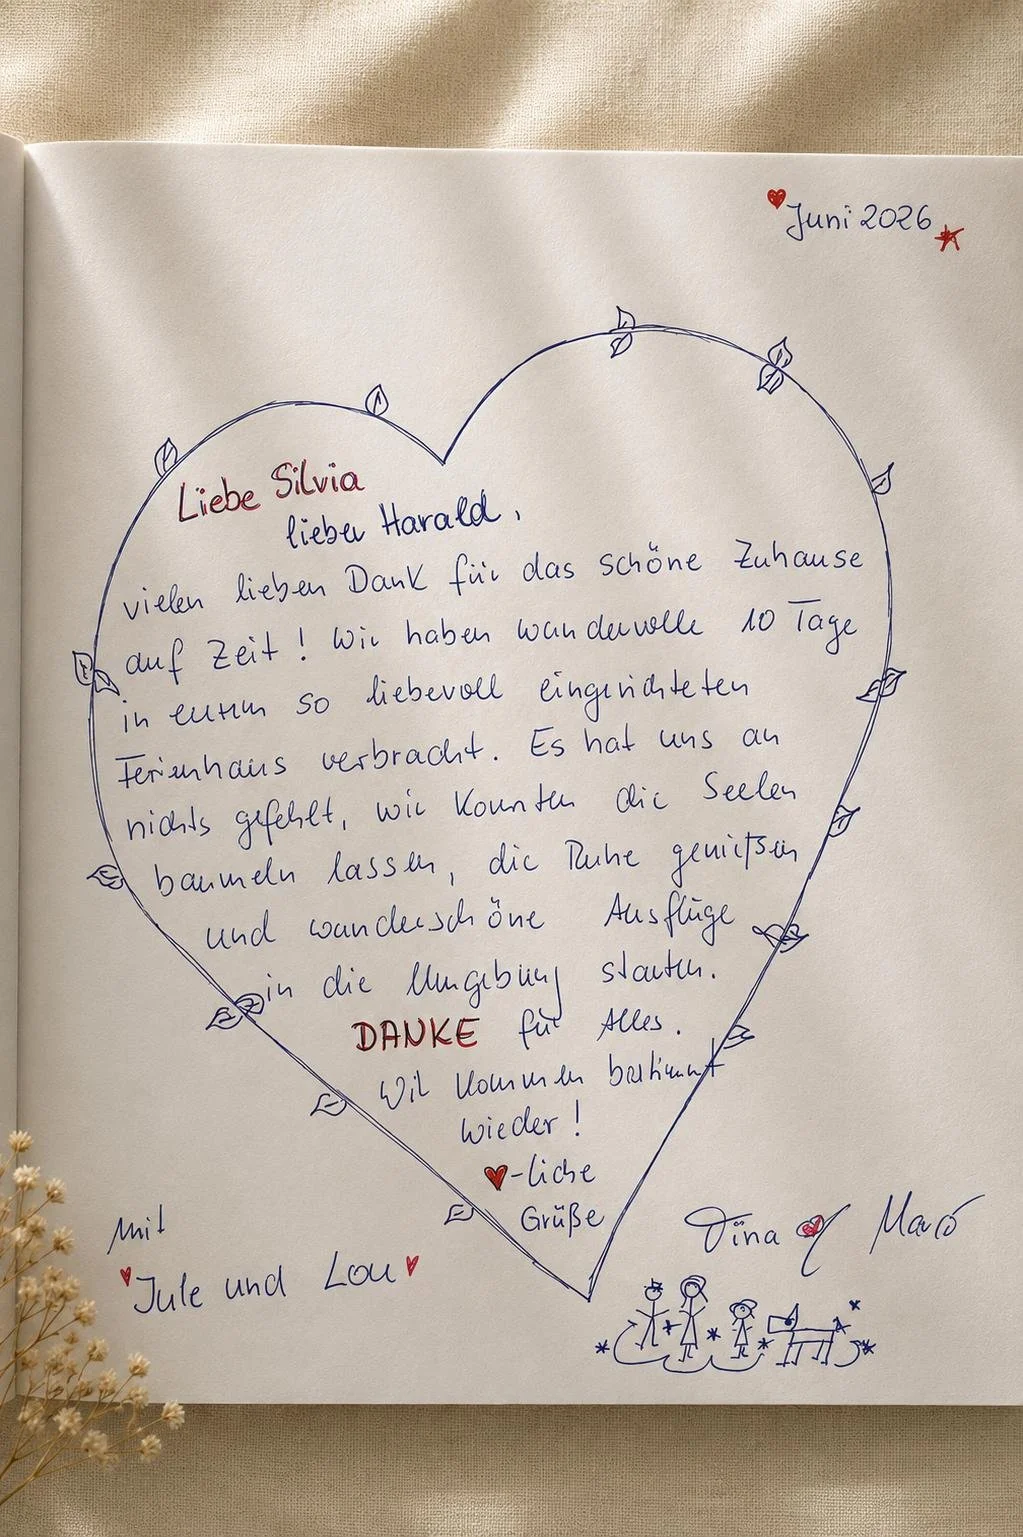 Juni 2026
Liebe Silvia
lieber Harald,
vielen lieben Dank für das schöne Zuhause
auf Zeit! Wir haben wundervolle 10 Tage
in eurem so liebevoll eingerichteten
Ferienhaus verbracht. Es hat uns an
nichts gefehlt, wir konnten die Seelen
baumeln lassen, die Ruhe genießen
und wunderschöne Ausflüge
in die Umgebung starten.
DANKE für Alles.
Wir kommen bestimmt
wieder!
♥-liche
Grüße
Mit
Jule und Lou
Tina & Marc